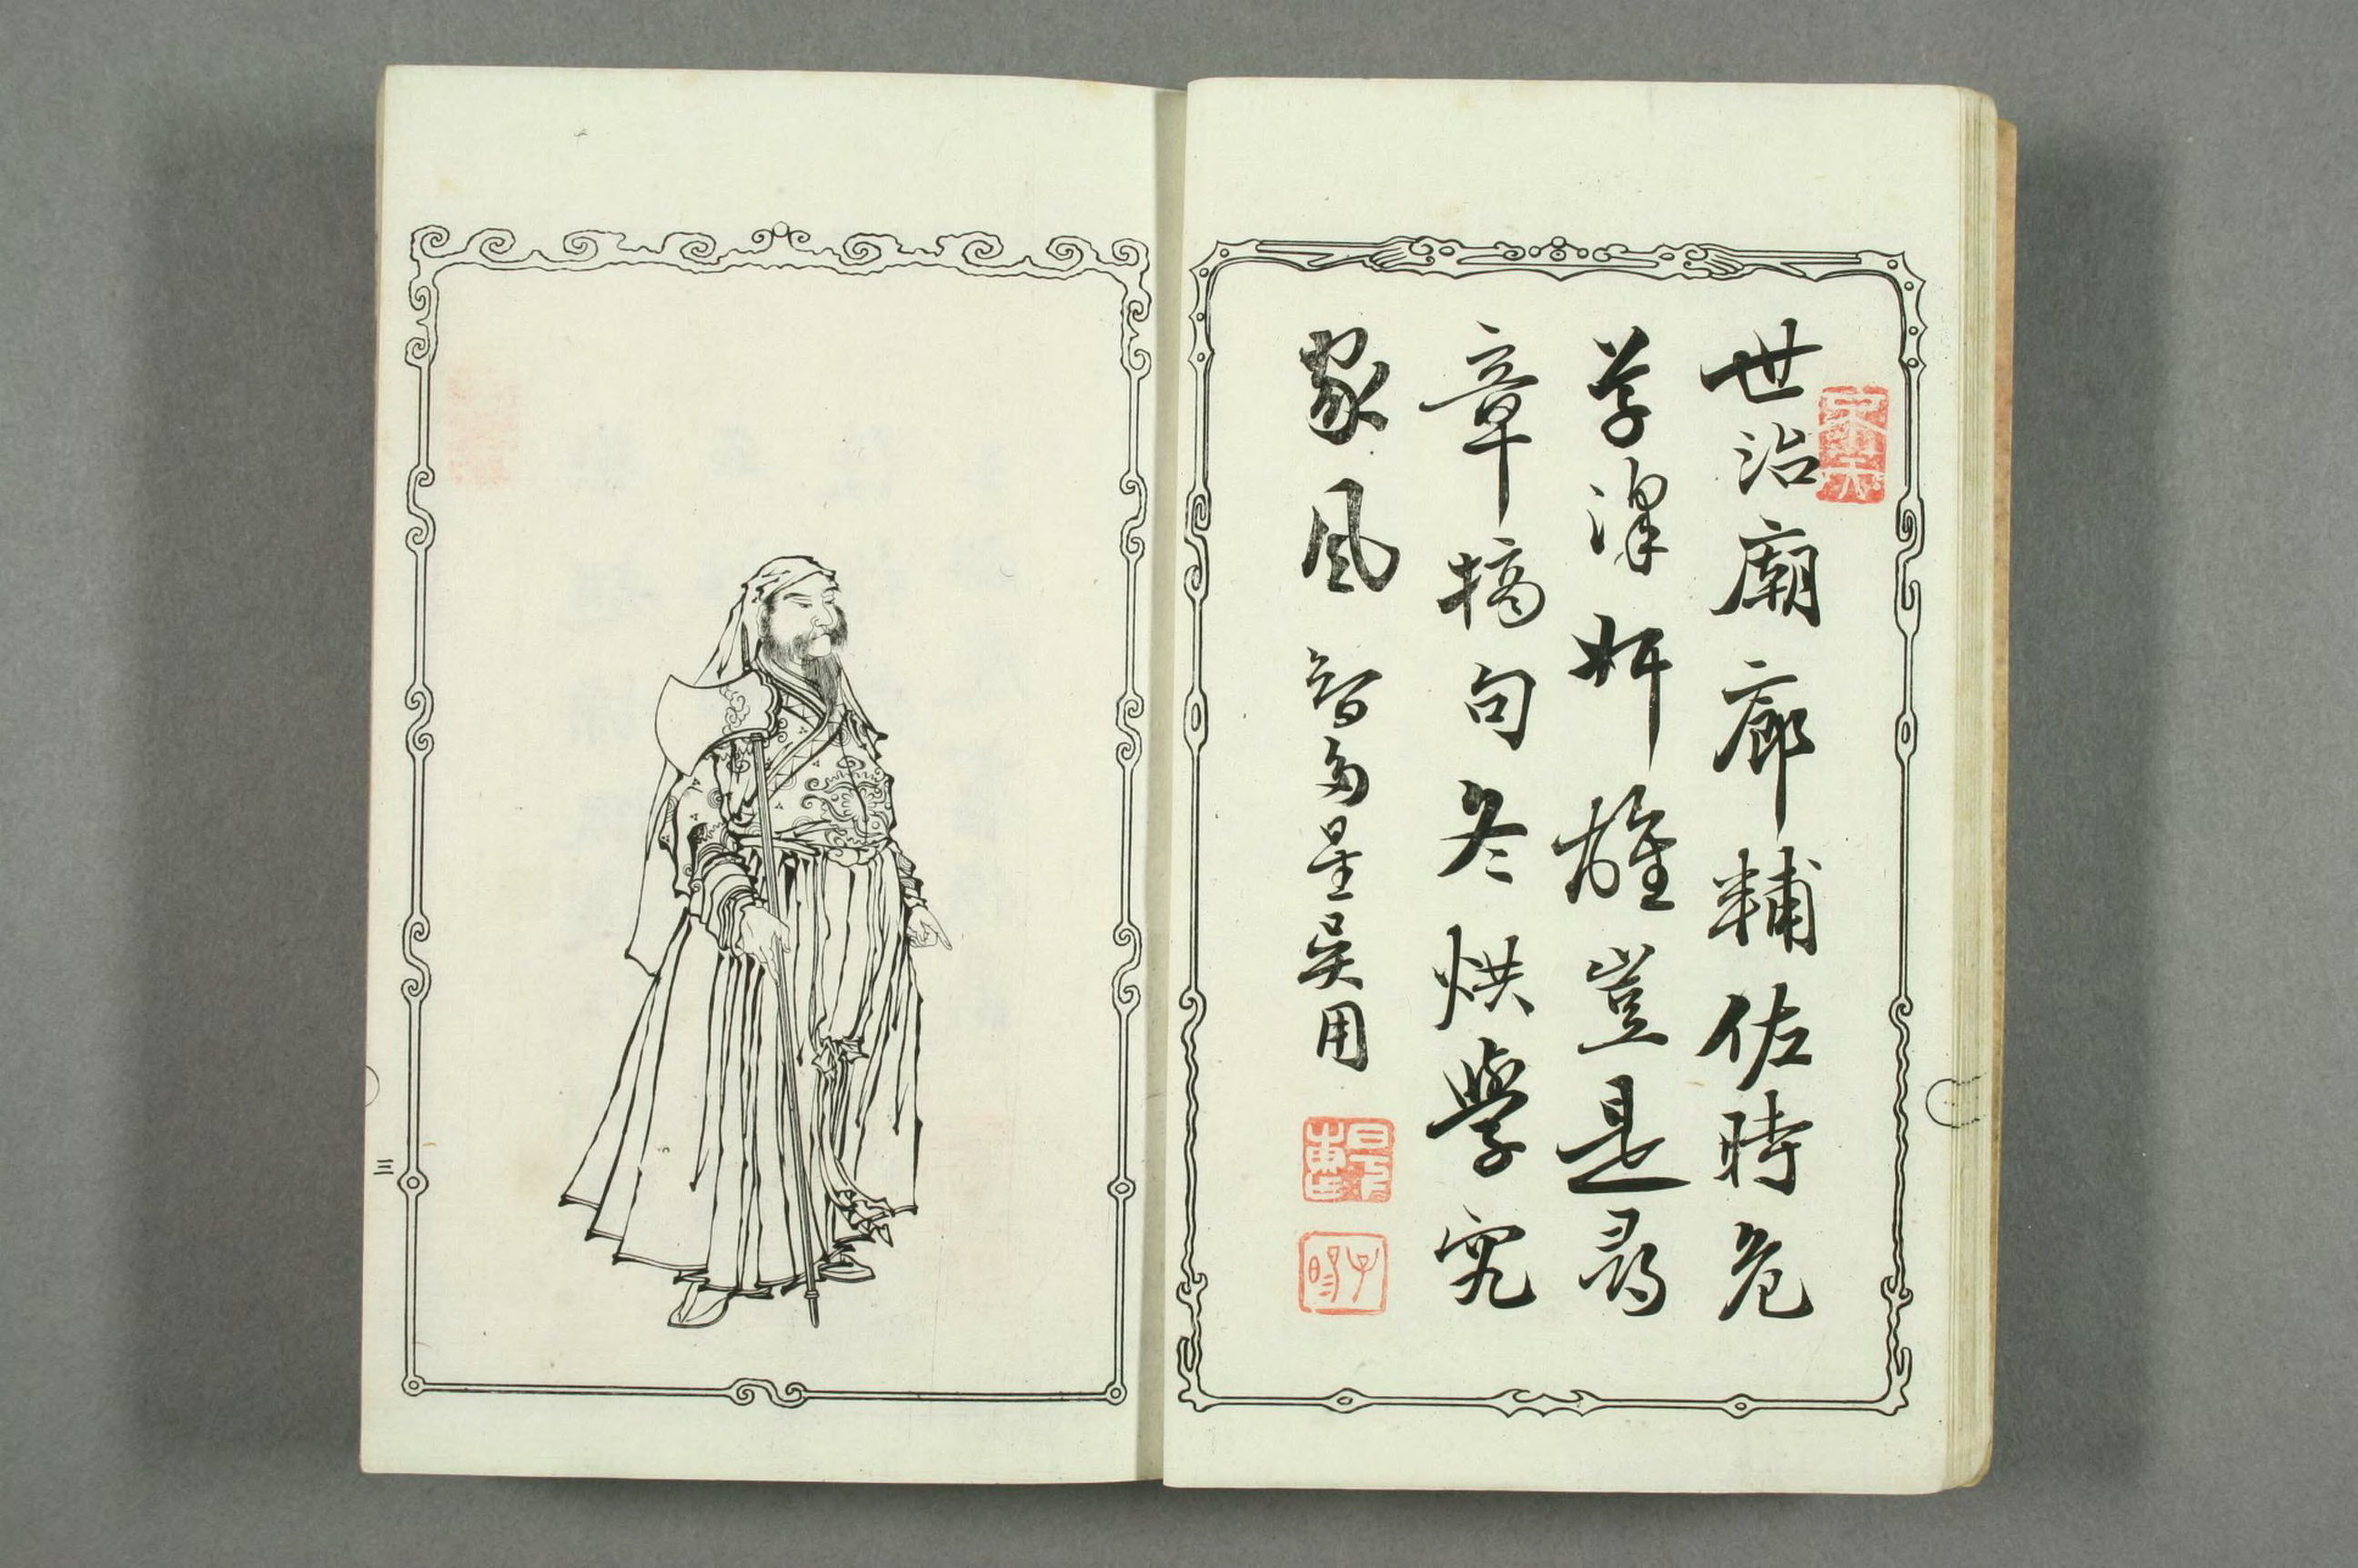 世治廟廊輔佐時危
草澤奸雄豈是尋
章摘句冬烘學究
家風 智多星吳用
三